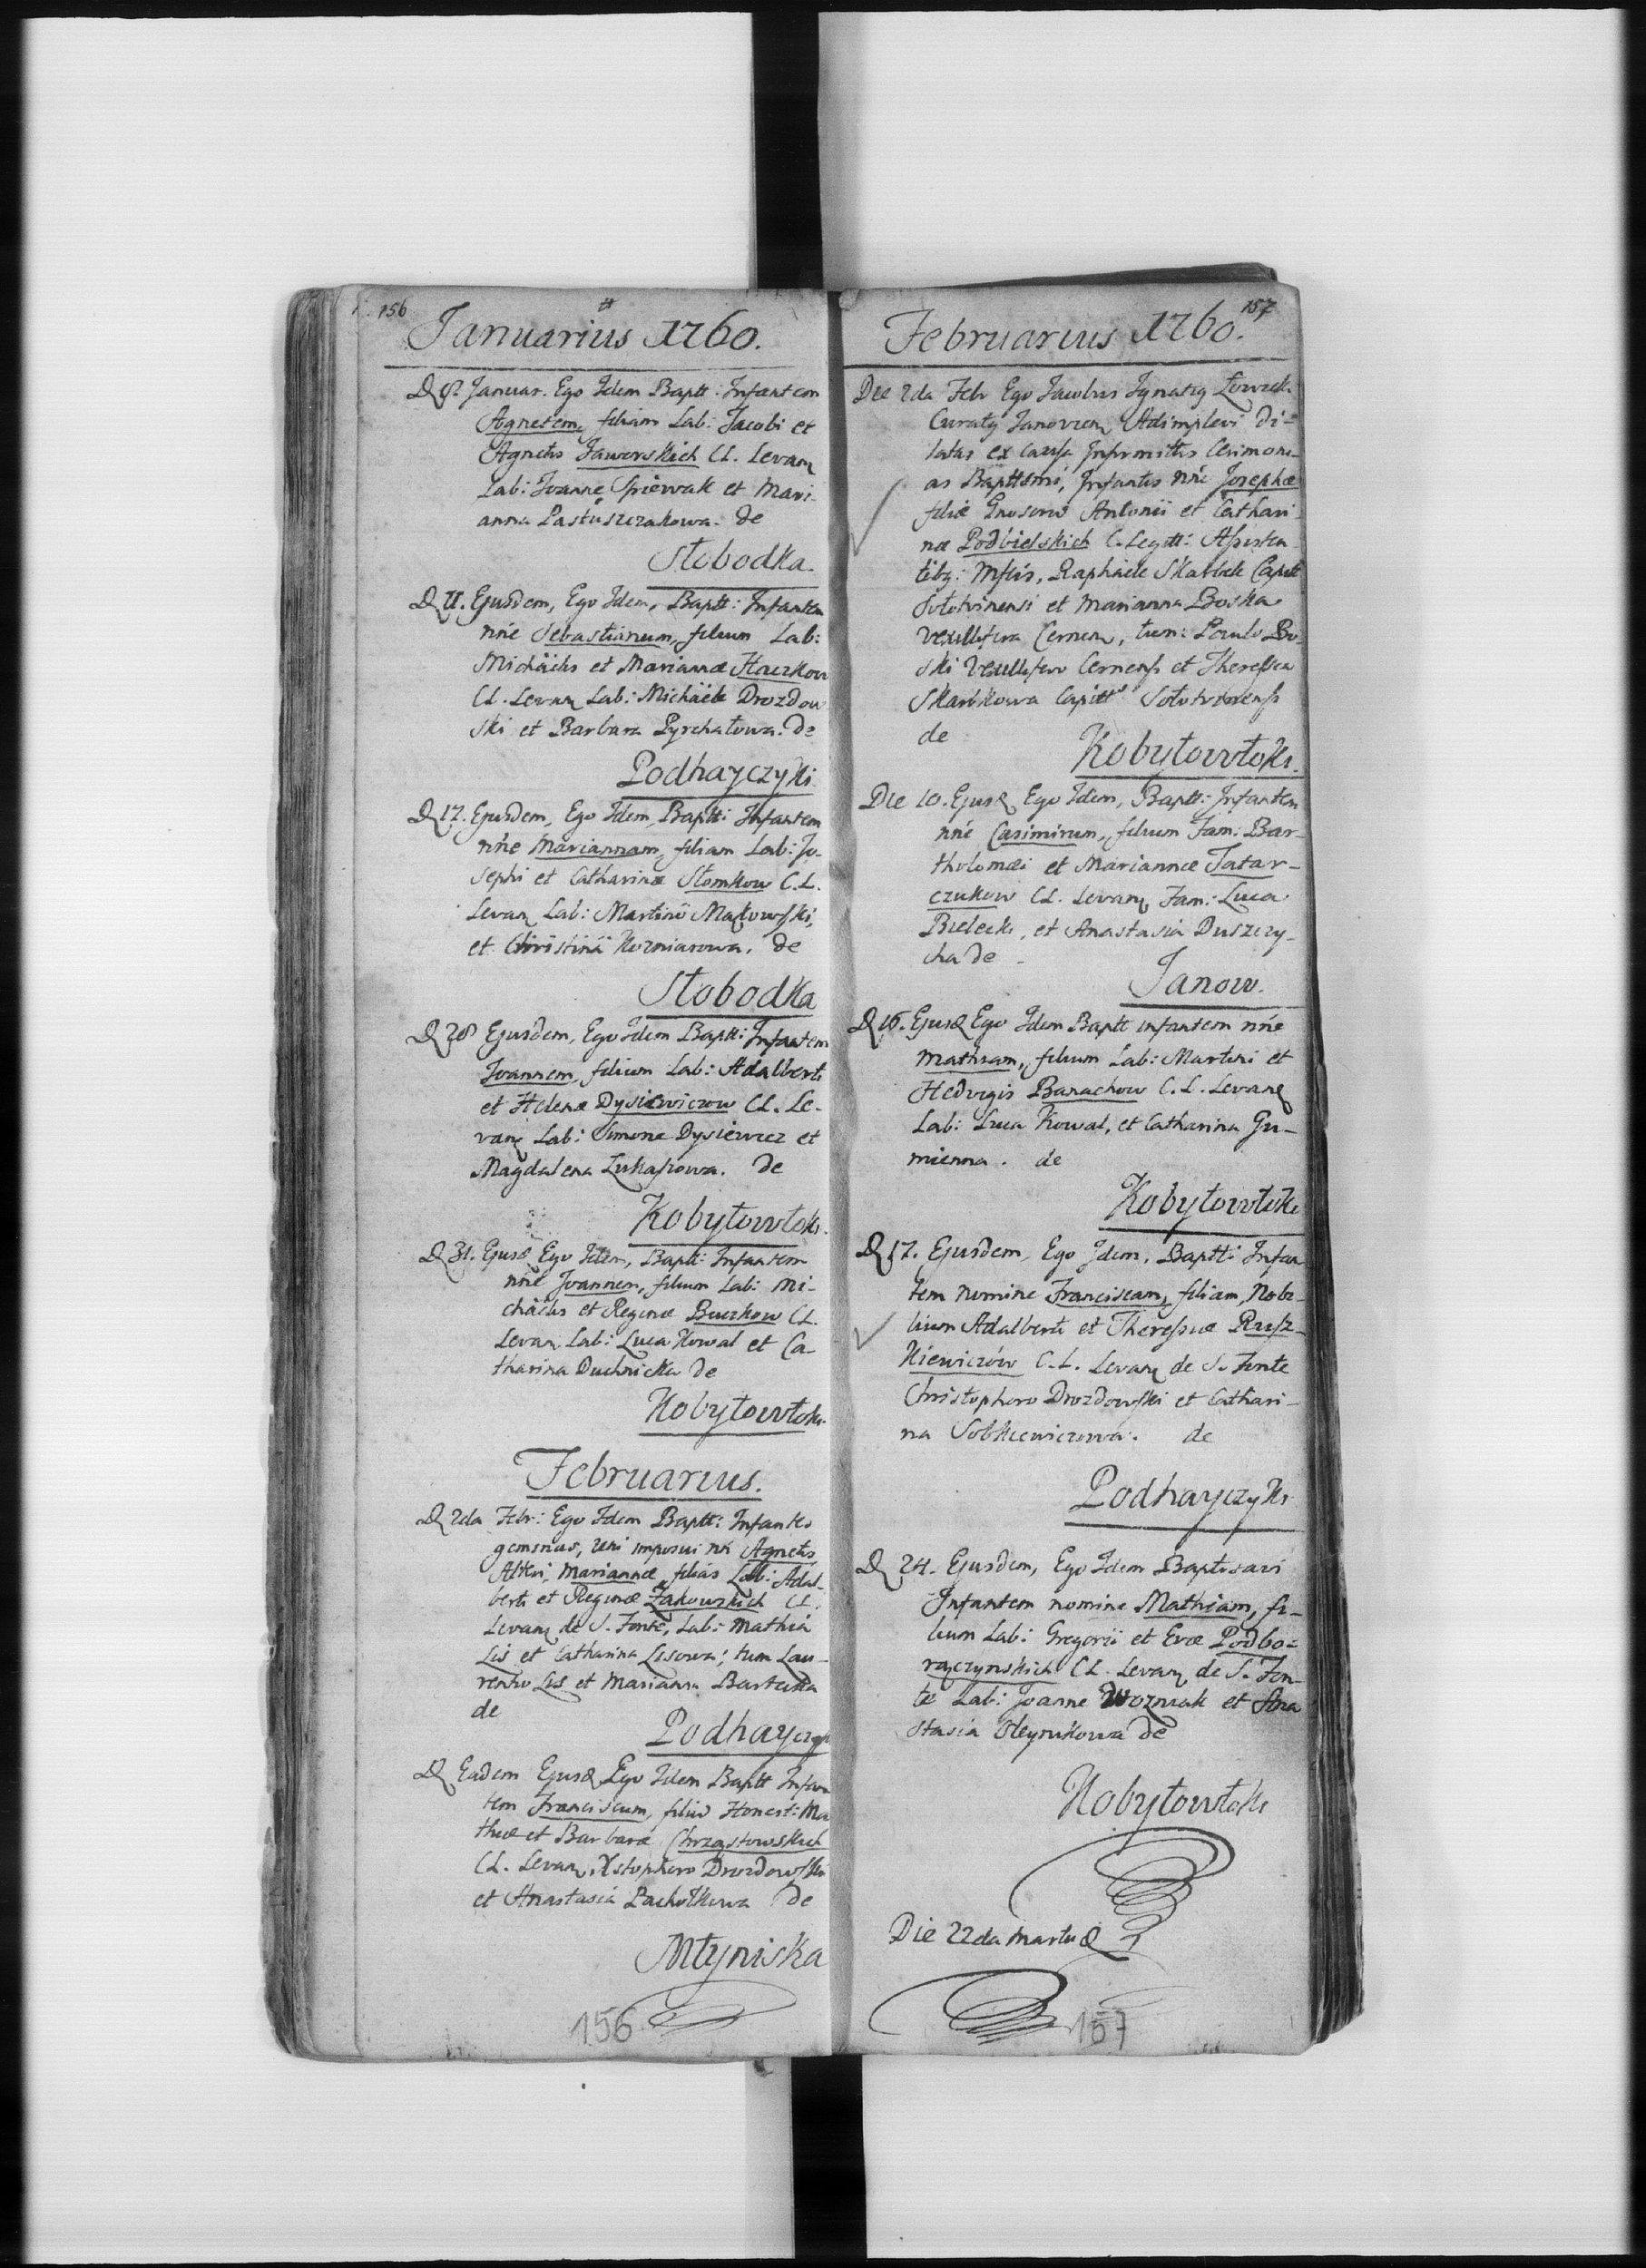 156
Januarius 1760.
D 8 Januar. Ego Idem Baptt: Infantem
Agnetem, filiam Lab: Jacobi et
Agnetis Jaworskich CL. Levan
Lab: Joanne Spiewak et Mari-
anna Pastuszczakowa. de
Słobodka.
D 11. Ejusdem, Ego Idem, Baptt: Infantem
nñe Sebastianum, filium Lab:
Michäelis et Mariannæ Haczkow
CL. Levan Lab: Michäele Drozdow
ski et Barbara Pyrchałowa. de
Podhayczyki
D 17. Ejusdem, Ego Idem, Baptt: Infantem
nñe Mariannam, filiam Lab: Jo-
sephi et Catharinæ Słomkow C.L.
Levan Lab: Martino Makowski,
et Christina Kozniarowa. de
Słobodka
D 28 Ejusdem, Ego Idem Baptt: Infantem
Joannem, filium Lab: Adalberti
et Helenæ Dysiewiczow CL. Le-
van Lab: Simone Dysiewicz et
Magdalena Lukaszowa. de
Kobyłowłoki.
D 31. Ejusd Ego Idem, Baptt: Infantem
nñe Joannem, filium Lab: Mi-
chäelis et Reginæ Buczkow CL.
Levan Lab: Luca Kowal et Ca-
tharina Duchnicka de
Kobyłowłoki.
Februarius.
D 2da Febr: Ego Idem Baptt: Infantes
gemmas, uni imposui nñ Agnetis
Alteri, Mariannæ filias Lab: Adal-
berti et Reginæ Żakowskich CL.
Levan de S. Fonte, Lab: Mathia
Lis et Catharina Lisowa; tum Lau-
rentio Lis et Marianna Bartecka
de
Podhayczyk
D Eadem Ejusd Ego Idem Baptt Infan
tem Franciscum, filiū Honest: Ma
thiæ et Barbaræ Chrząstowskich
CL. Levan, Xstophoro Drozdowski
et Anastasia Pachołkowa de
Młyniska
156
157
Februarius 1760.
Die 2da Febr Ego Jacobus Ignaty
Curaty Janovien Adimplevi di-
latas ex causa Infirmittis Cerimoni-
as Baptismi, Infantis nñe Josephæ
filiæ Gnosorū Antonii et Cathari-
næ Podbielskich C. Legitt: Assisten-
tibz: Mfcis, Raphaele Skarbek Capitt
Sołotvinensi et Marianna Boska
Vexillifera Cernen, tum: Paulo Bo-
ski Vexillifero Cernens et Theressa
Skarbkowa Capitt Sołotvinens
de
Kobyłowłoki.
Die 10. Ejusd Ego Idem, Baptt: Infantem
nñe Casimirum, filium Fam: Bar-
tholomæi et Mariannæ Tatar-
czukow CL. Levan Fam: Luca
Bielecki, et Anastasia Duszczy-
cha de
Janow.
D 16. Ejusd Ego Idem Baptt infantem nñe
Mathiam, filium Lab: Martini et
Hedvigis Banachow C.L. Levane
Lab: Luca Kowal, et Catharina Gu-
mienna. de
Kobyłowłoki
D 17. Ejusdem, Ego Idem, Baptt: Infan
tem nomine Franciscam, filiam, Nobi-
lium Adalberti et Theressiæ Rusz-
kiewiczów C.L. Levan de S. Fonte
Christophoro Drozdowski et Cathari-
na Sobkiewiczowa. de
Podhayczyki
D 24. Ejusdem, Ego Idem Baptisavi
Infantem nomine Mathiam, fi-
lium Lab: Gregorii et Evæ Podbo-
rączynskich CL. Levan de S. Fon-
te Lab: Joanne Wozniak et Ana
stasia Oleynikowa de
Kobyłowłoki
Die 22da Martii
157